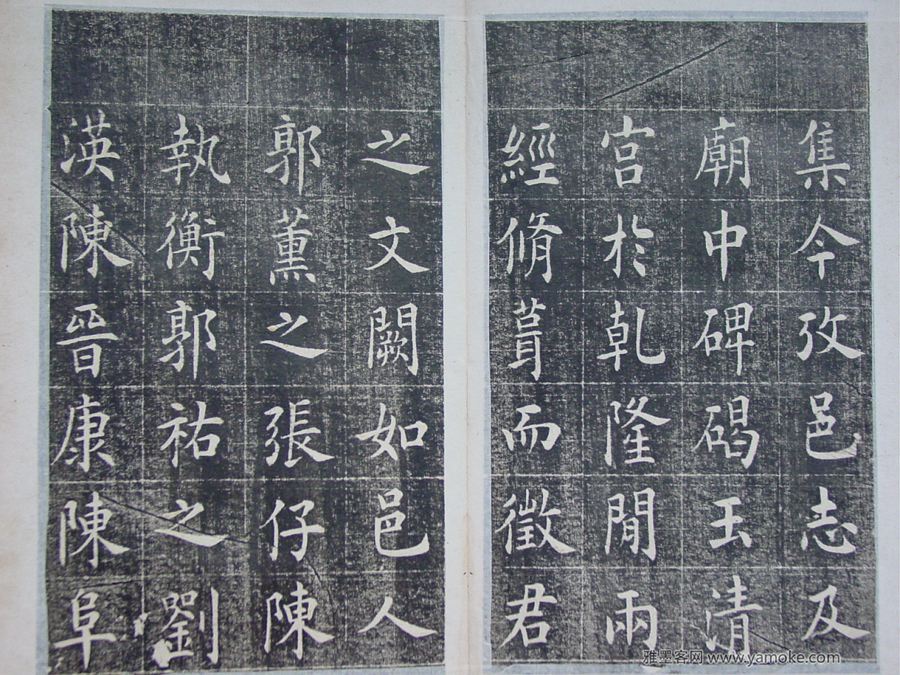 集今攷邑志及
廟中碑碣玉清
宮於乾隆閒兩
經脩葺而徵君
之文闕如邑人
郭薰之張仔陳
執衡郭祐之劉
渶陳晉康陳阜
雅墨客网 www.yamoke.com